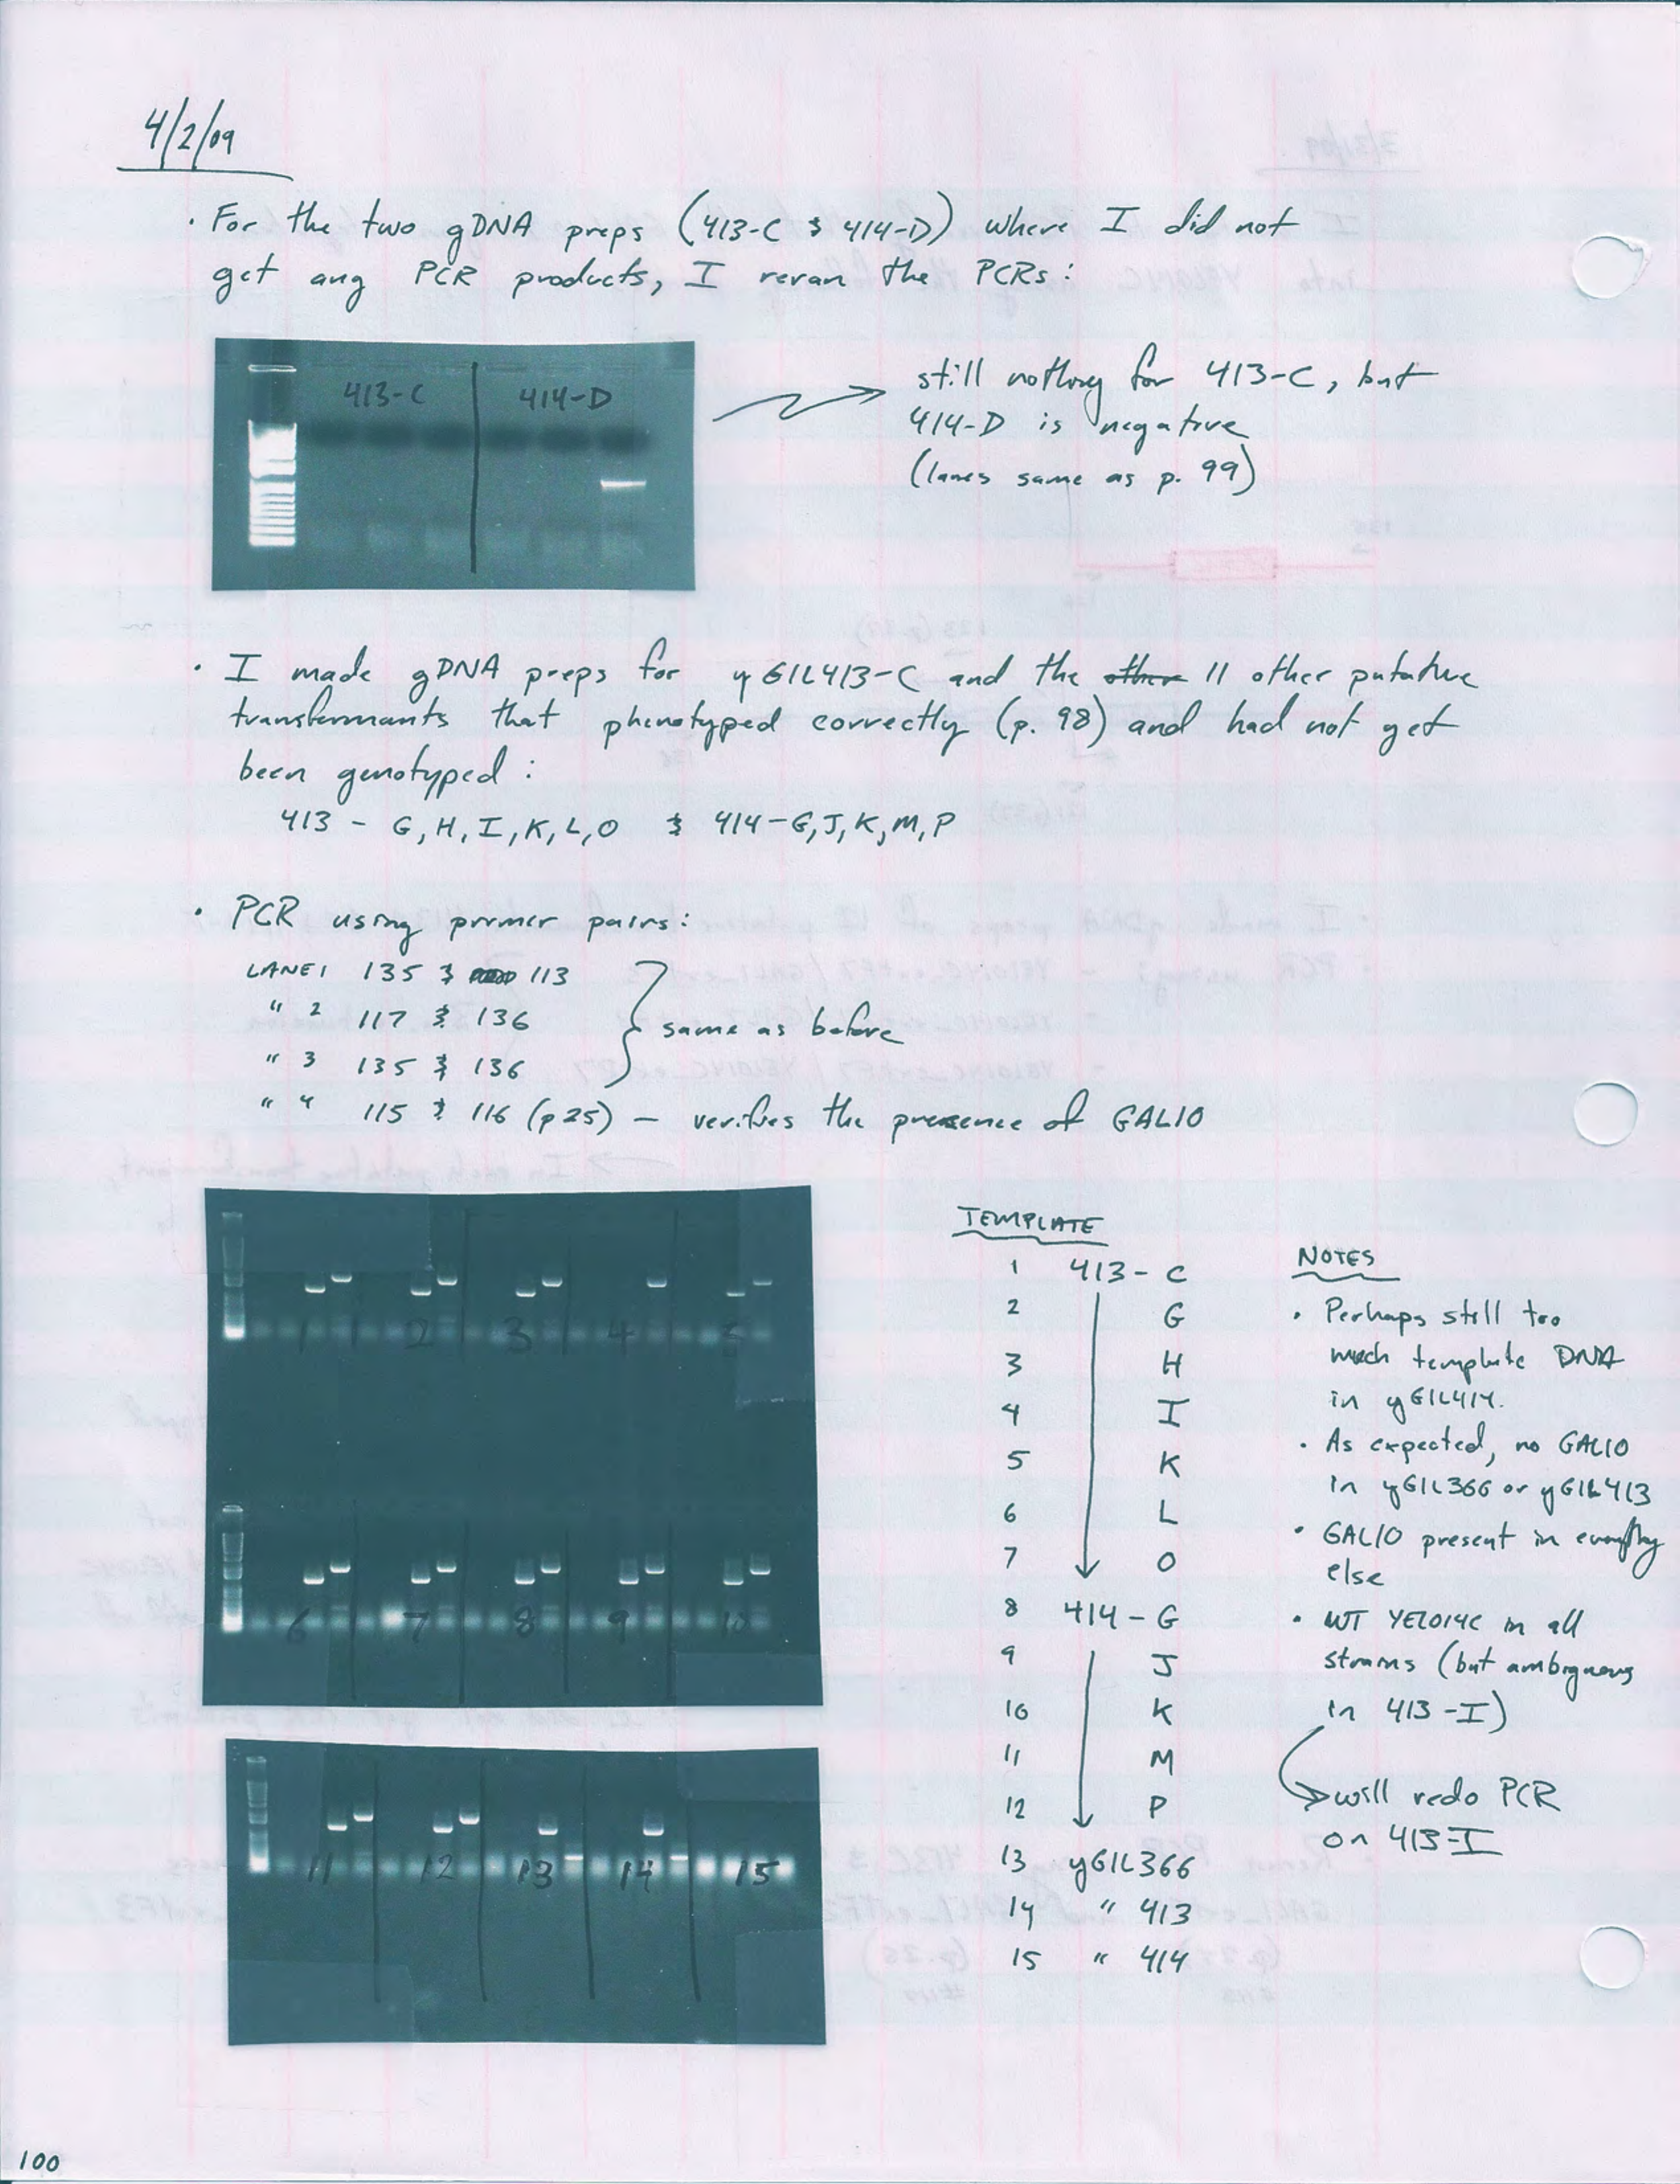 4/2/09
· For the two gDNA preps (413-C & 414-D) where I did not
get any PCR products, I reran the PCRs:
413-C 414-D
still nothing for 413-C, but
414-D is negative
(lanes same as p. 99)
· I made gDNA preps for yGIL413-C and the other 11 other putative
transformants that phenotyped correctly (p. 98) and had not yet
been genotyped:
413 - G, H, I, K, L, O & 414 - G, J, K, M, P
· PCR using primer pairs:
LANE 1 135 & 113
" 2 117 & 136
" 3 135 & 136
same as before
" 4 115 & 116 (p 25) — verifies the presence of GAL10
1 2 3 4 5
6 7 8 9 10
11 12 13 14 15
TEMPLATE
1 413 - C
2 G
3 H
4 I
5 K
6 L
7 O
8 414 - G
9 J
10 K
11 M
12 P
13 yGIL366
14 " 413
15 " 414
NOTES
· Perhaps still too
much template DNA
in yGIL414.
· As expected, no GAL10
in yGIL366 or yGIL413
· GAL10 present in everything
else
· WT YEL014C in all
strains (but ambiguous
in 413 - I)
will redo PCR
on 413-I
100